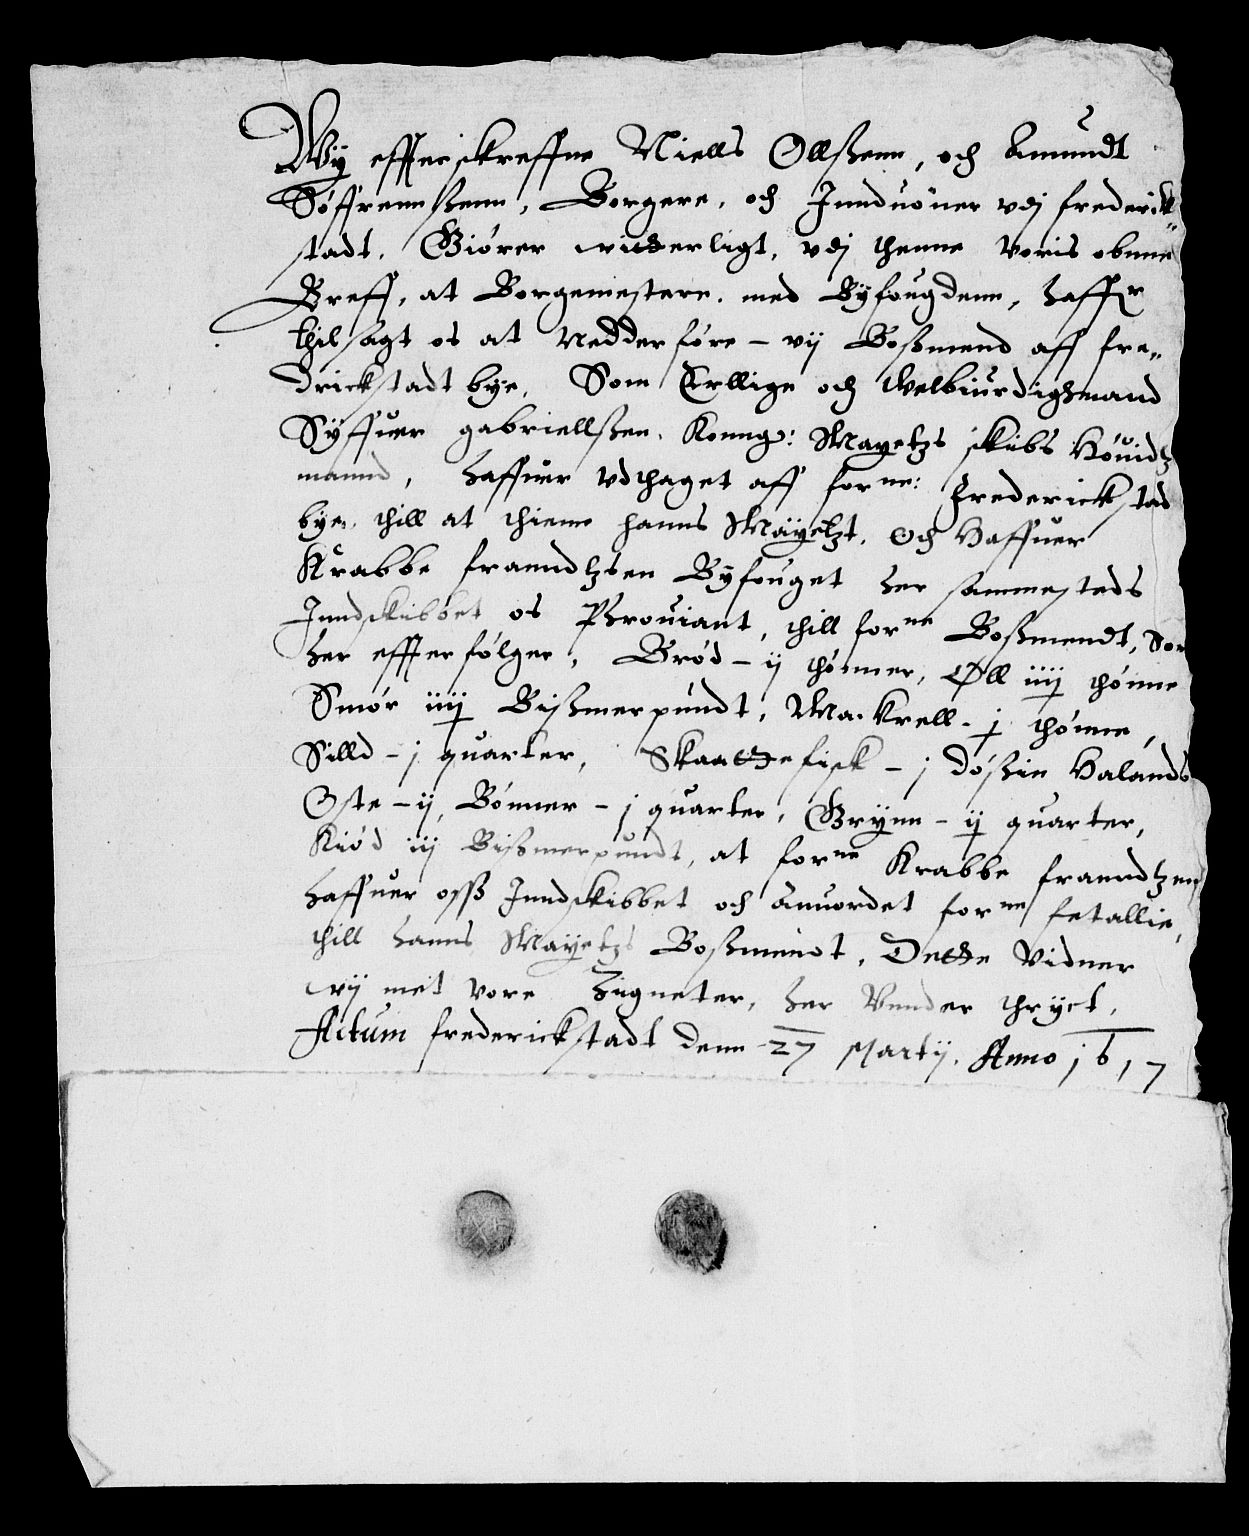 Wy effterskreffne Niells Ollßenn, och Amundt
Søffrennßenn, Borgere, och Jnnduöner vdj frederick-
stadt, Giörer witterligt, vdj thenne voris obnne
Breff, at Borgemestere, med Byfougdenn, haffr
thilsagt os at Nedderføre - vij Boßmend aff fre-
drickstadt bye, Som Erllige och Welbiurdighmand
Syffuer gabriellßen, Konng: Mayetzs skibs Höuidtz
mannd, haffuer vdthaget aff forne: Frederickstad
bye, thill at thiene hanns Mayetzt, och Haffuer
Krabbe franndtzsen Byfouget her sammesteds
Jnndskibbet os Phrouiant, thill forne Boßmendt, Som
her effterfølger, Brød - ij thönner, Øll iiij thönne
Smör iiij Bißmerpundt, Mackrell - j thönne,
Silld - j quarter, Skaattefisk - j dößin Halands
Oste - ij, Bönner - j quarter, Grynn - ij quarter,
Kiöd iij Bißmerpundt, at forne Krabbe franndtzen
haffuer osß Jnndskibbet och Anuordet forne fetallie,
thill hanns Mayetzs Boßmendt, Dette Vidner
wij met vore Zigneter, her Vnnder thryct,
Actum frederickstadt denn 27 Martij, Anno 1617